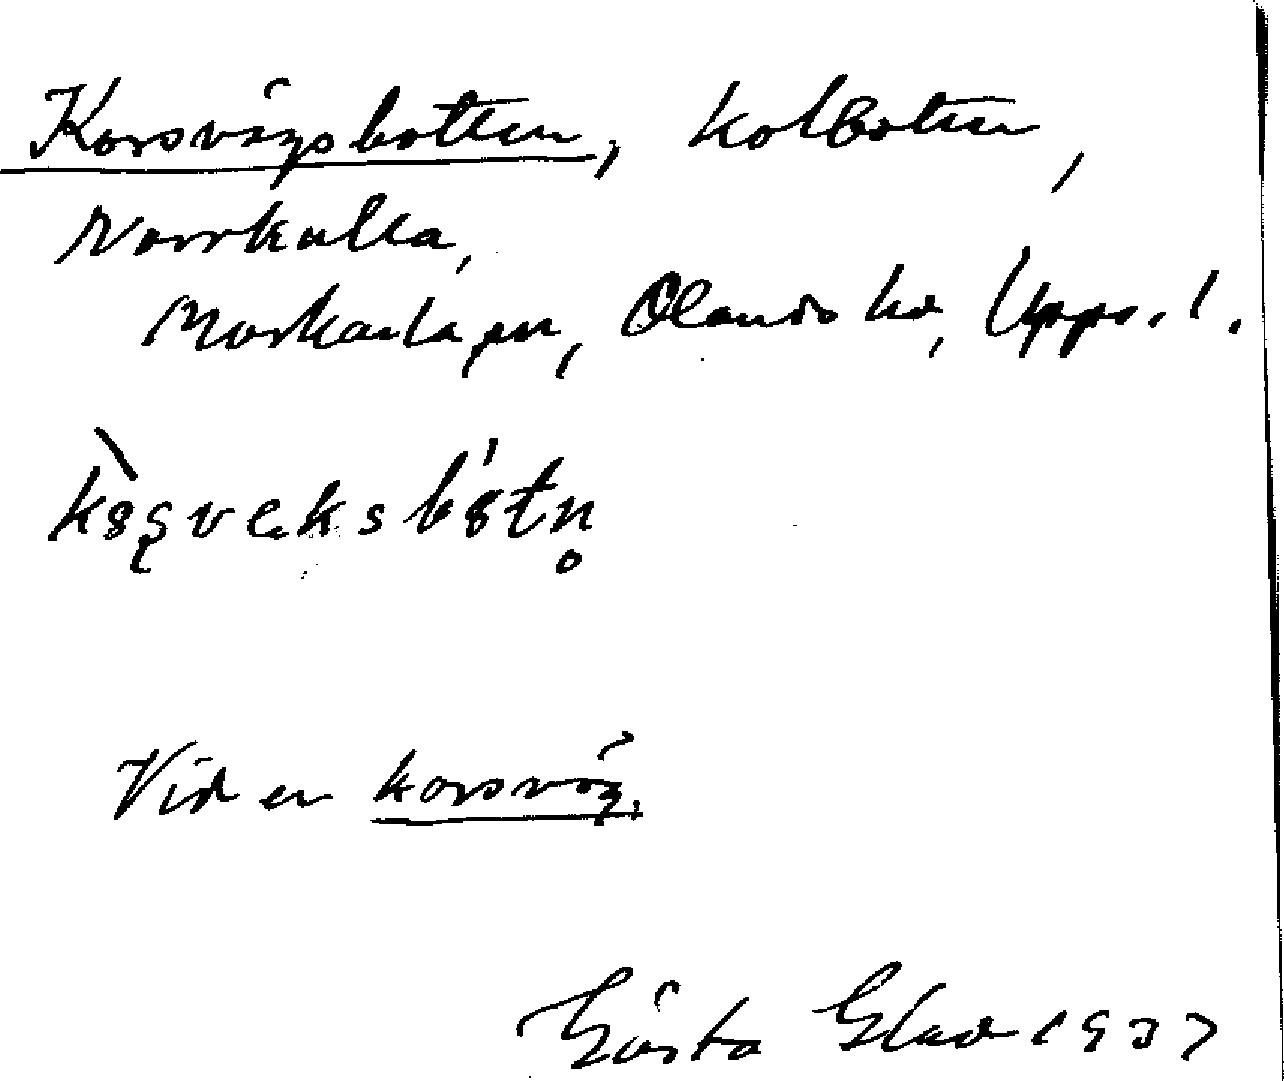 Korsvägsbotten, kolbotten,
Norrkulla,
Morkarla sn, Olands hd, Upps. l.
Vid en korsväg.
Gösta Glad 1937